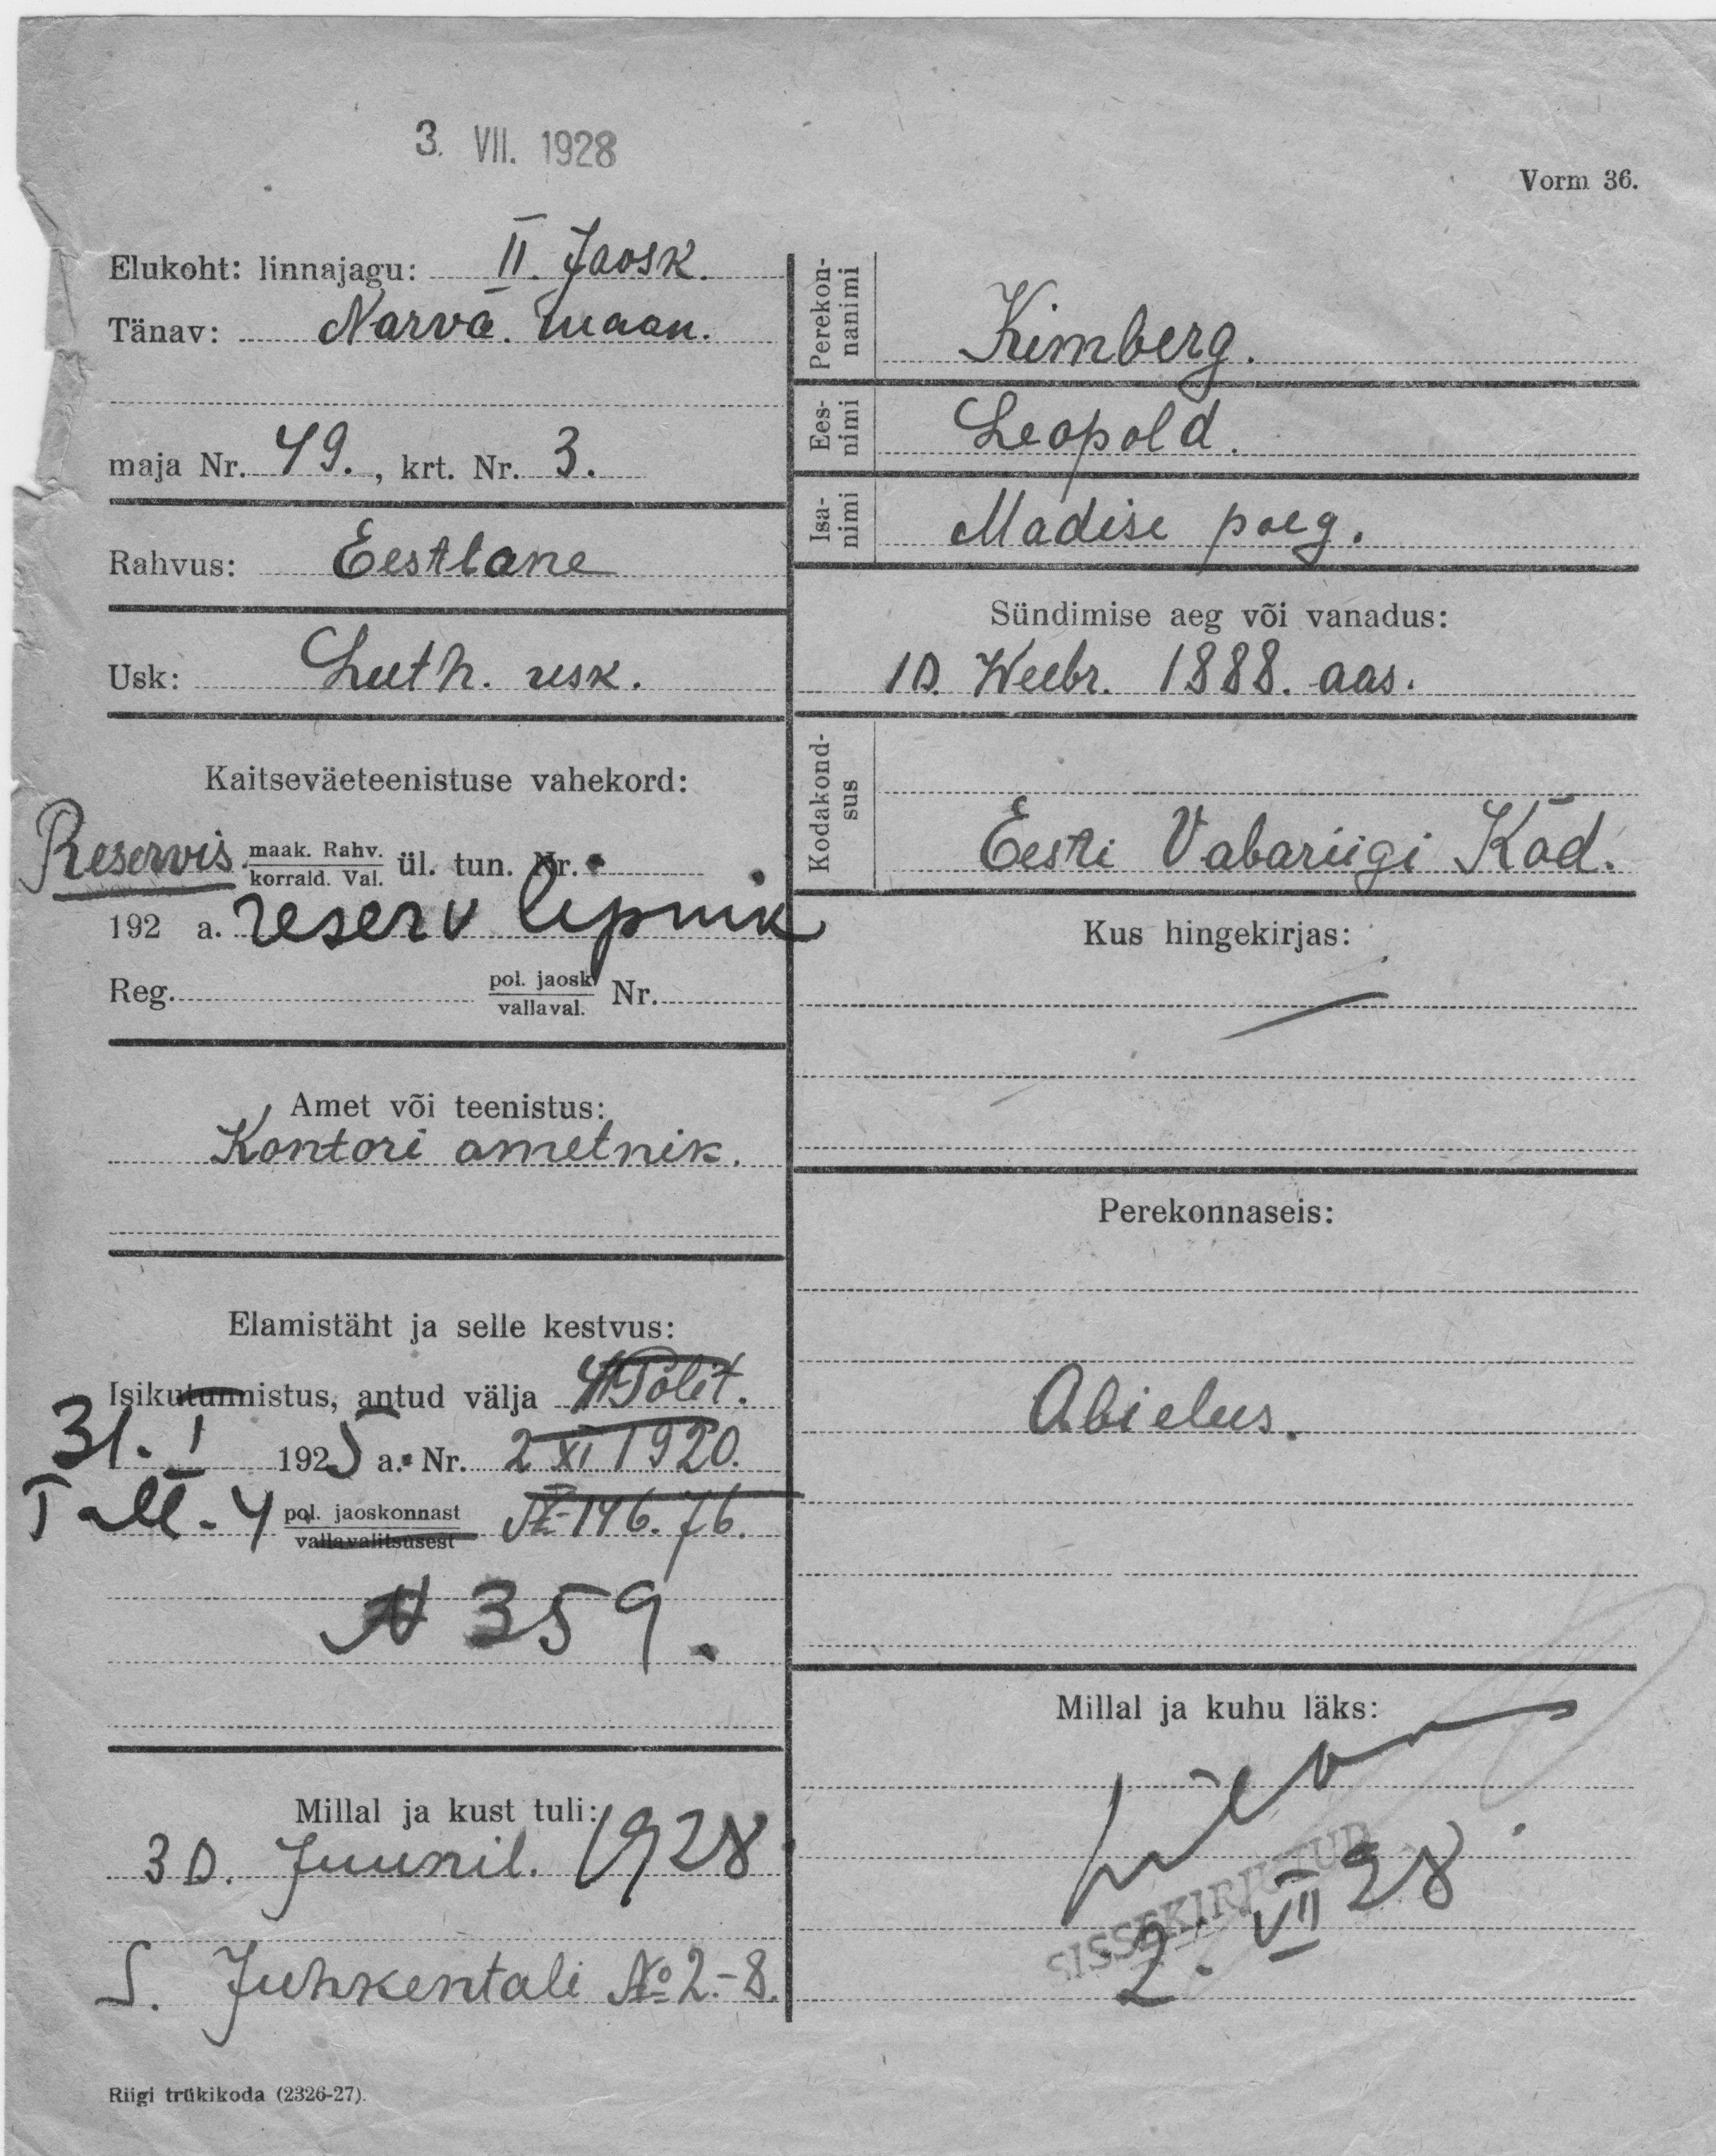 3. VII. 1928
Vorm 36.
Elukoht: linnajagu: II. Jaosk.
Tänav: Narva. maan.
maja Nr. 49., krt. Nr. 3.
Rahvus: Eestlane
Usk: Luth. usk.
Kaitseväeteenistuse vahekord:
Reservis maak. Rahv. ül. tun. Nr.
korrald. Val.
192 a. reserv lipnik
Reg. pol. jaosk. Nr.
vallaval.
Amet või teenistus:
Kontori ametnik.
Elamistäht ja selle kestvus:
Isikutunnistus, antud välja Polit.
31. I 1925 a. Nr. 2 XI 1920.
Tall. 4 pol. jaoskonnast IV-146.76.
vallavalitsusest
N 359.
Millal ja kust tuli:
30. Juunil. 1928
S. Juhkentali № 2.-8.
Riigi trükikoda (2326-27).
Perekon-
nanimi
Kimberg.
Ees-
nimi
Leopold.
Isa-
nimi
Madise poeg.
Sündimise aeg või vanadus:
10. Weebr. 1888. aas.
Kodakond-
sus
Eesti Vabariigi Kod.
Kus hingekirjas:
Perekonnaseis:
Abielus.
Millal ja kuhu läks:
SISSEKIRJUTUD
2. VII 28